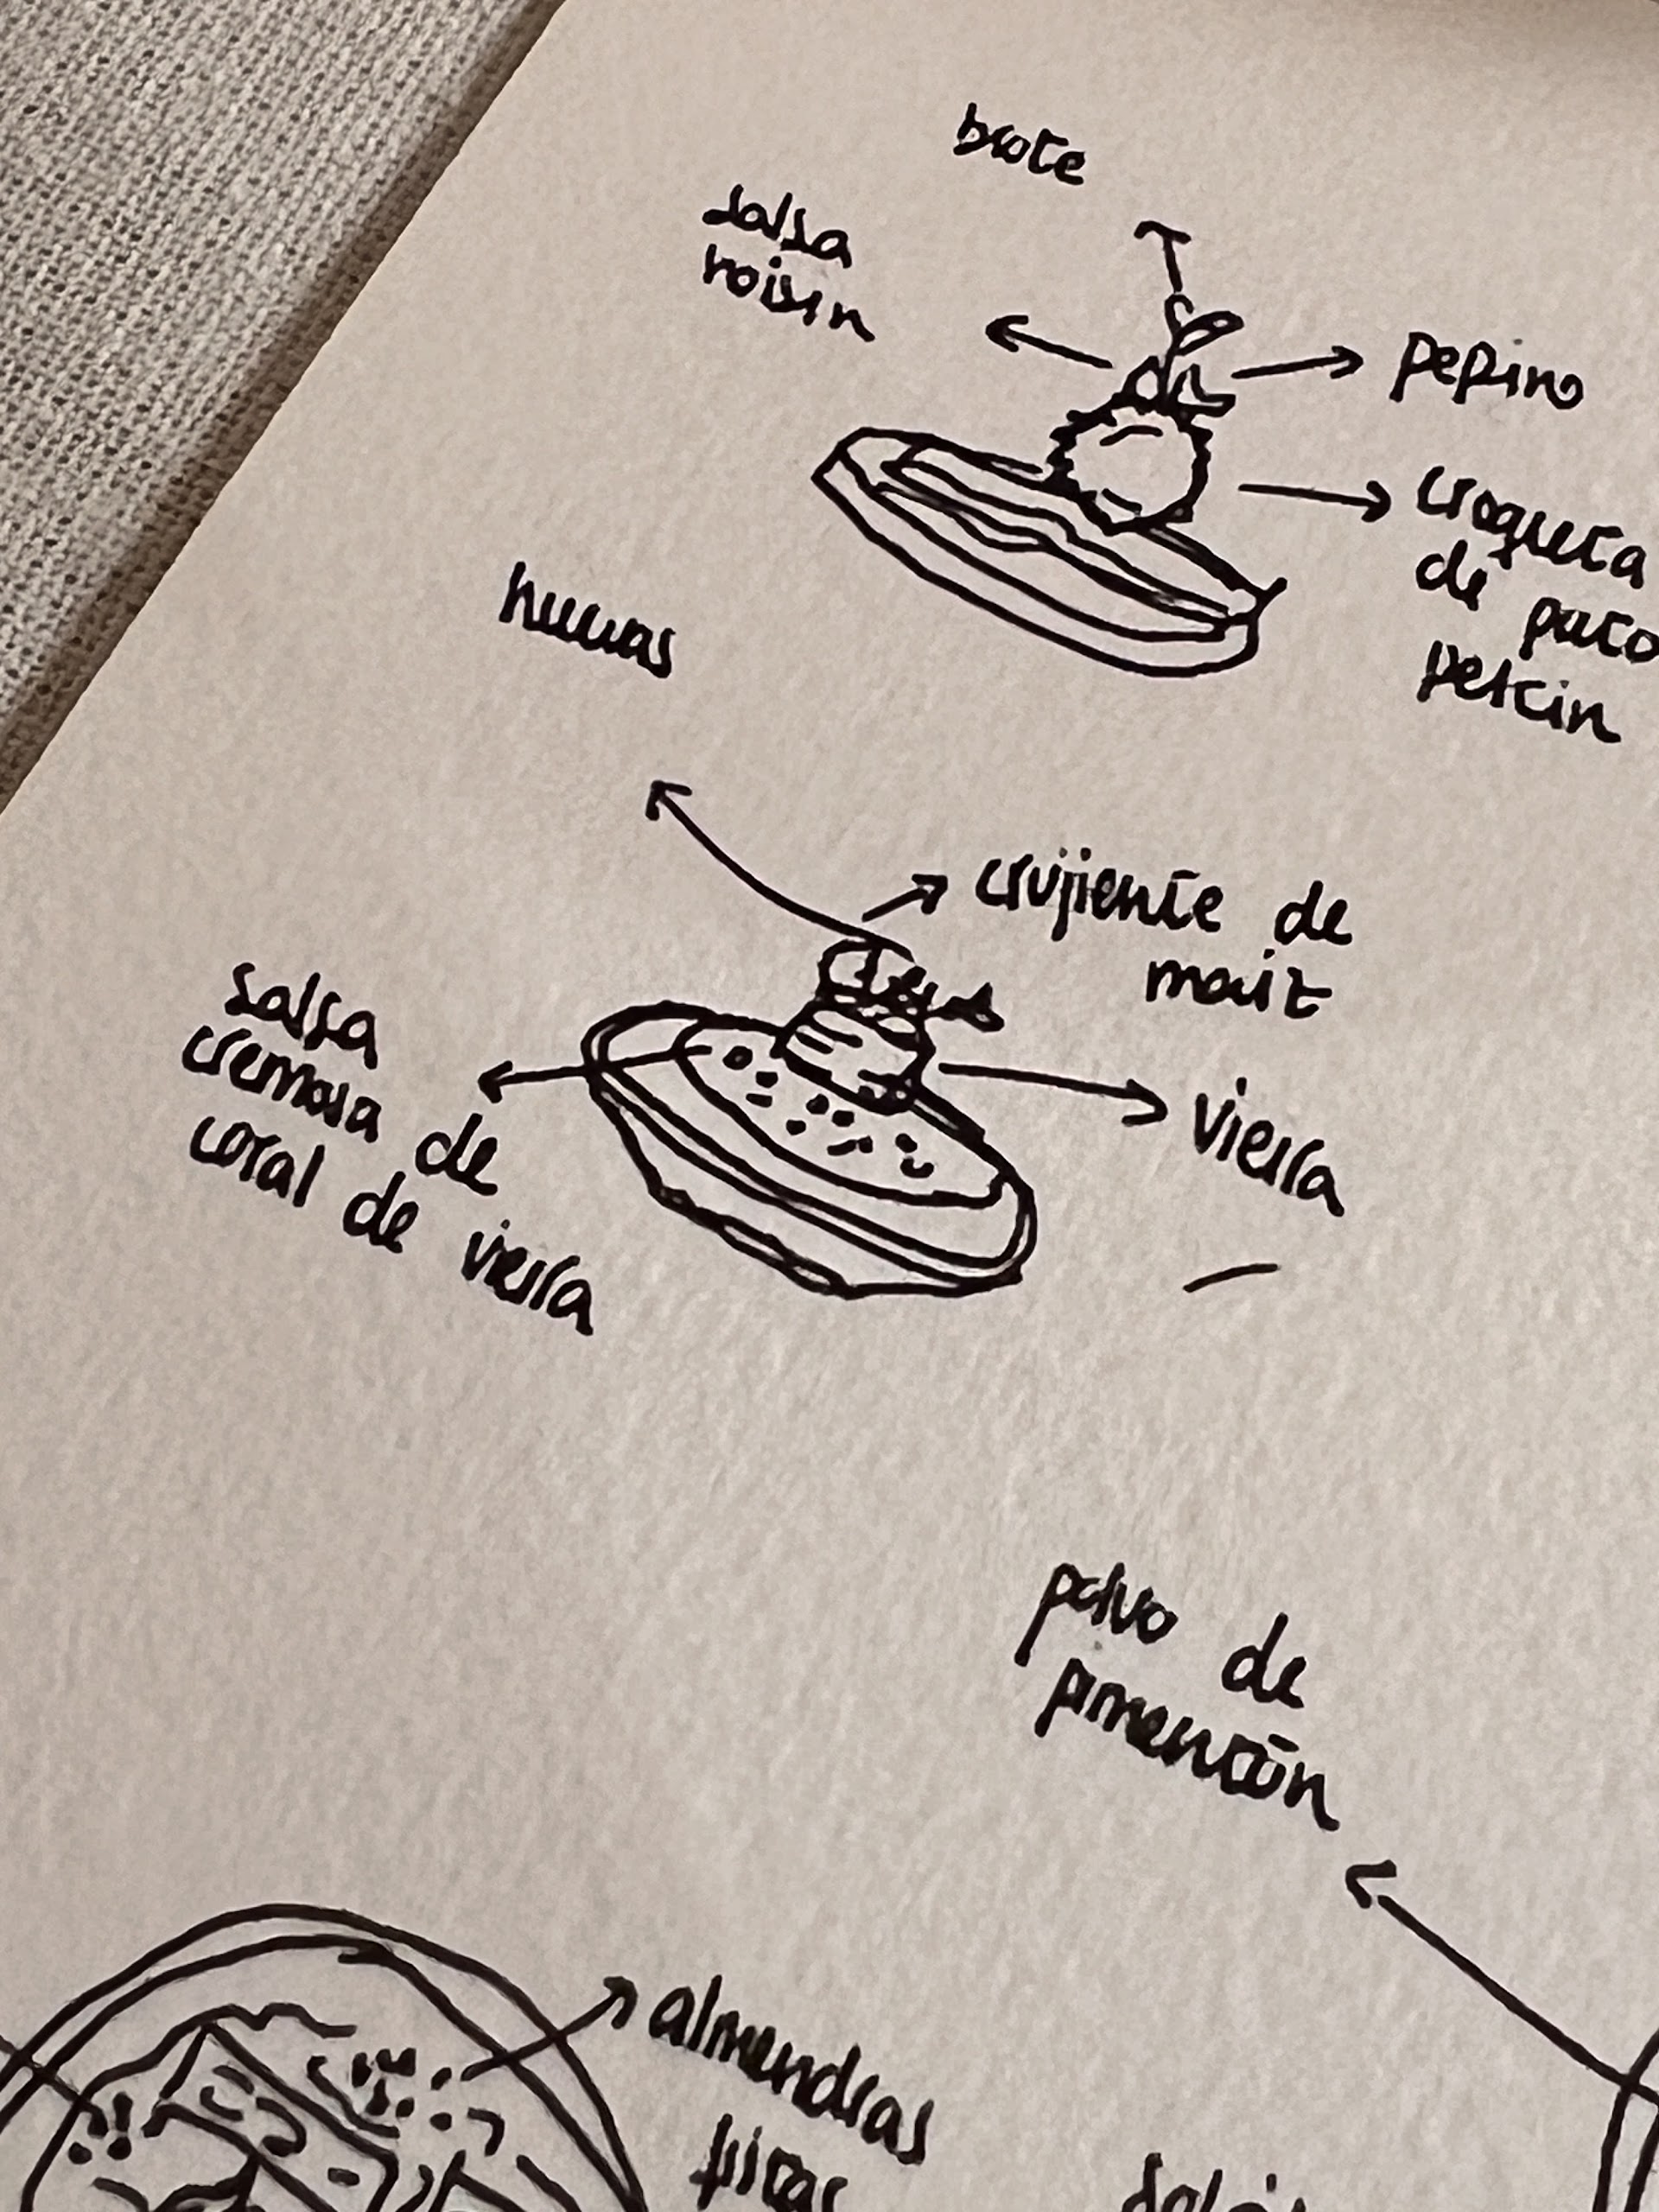 brote
salsa
hoisin
pepino
croqueta
de pato
pekin
huevas
crujiente de
maiz
salsa
cremosa de
coral de vieira
vieira
polvo de
pimentón
almendras